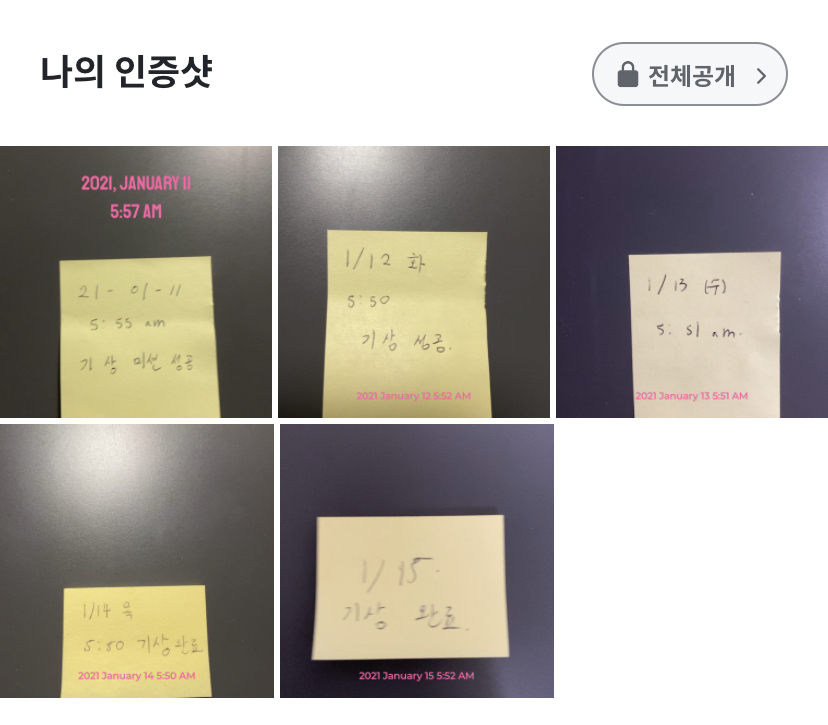 나의 인증샷
전체공개
2021, JANUARY 11
5:57 AM
21 - 01 - 11
5: 55 am
기상 미션 성공
1/12 화
5:50
기상 성공.
2021 January 12 5:52 AM
1/13 (수)
5: 51 am.
2021 January 13 5:51 AM
1/14 목
5:50 기상완료
2021 January 14 5:50 AM
1/15.
기상 완료.
2021 January 15 5:52 AM